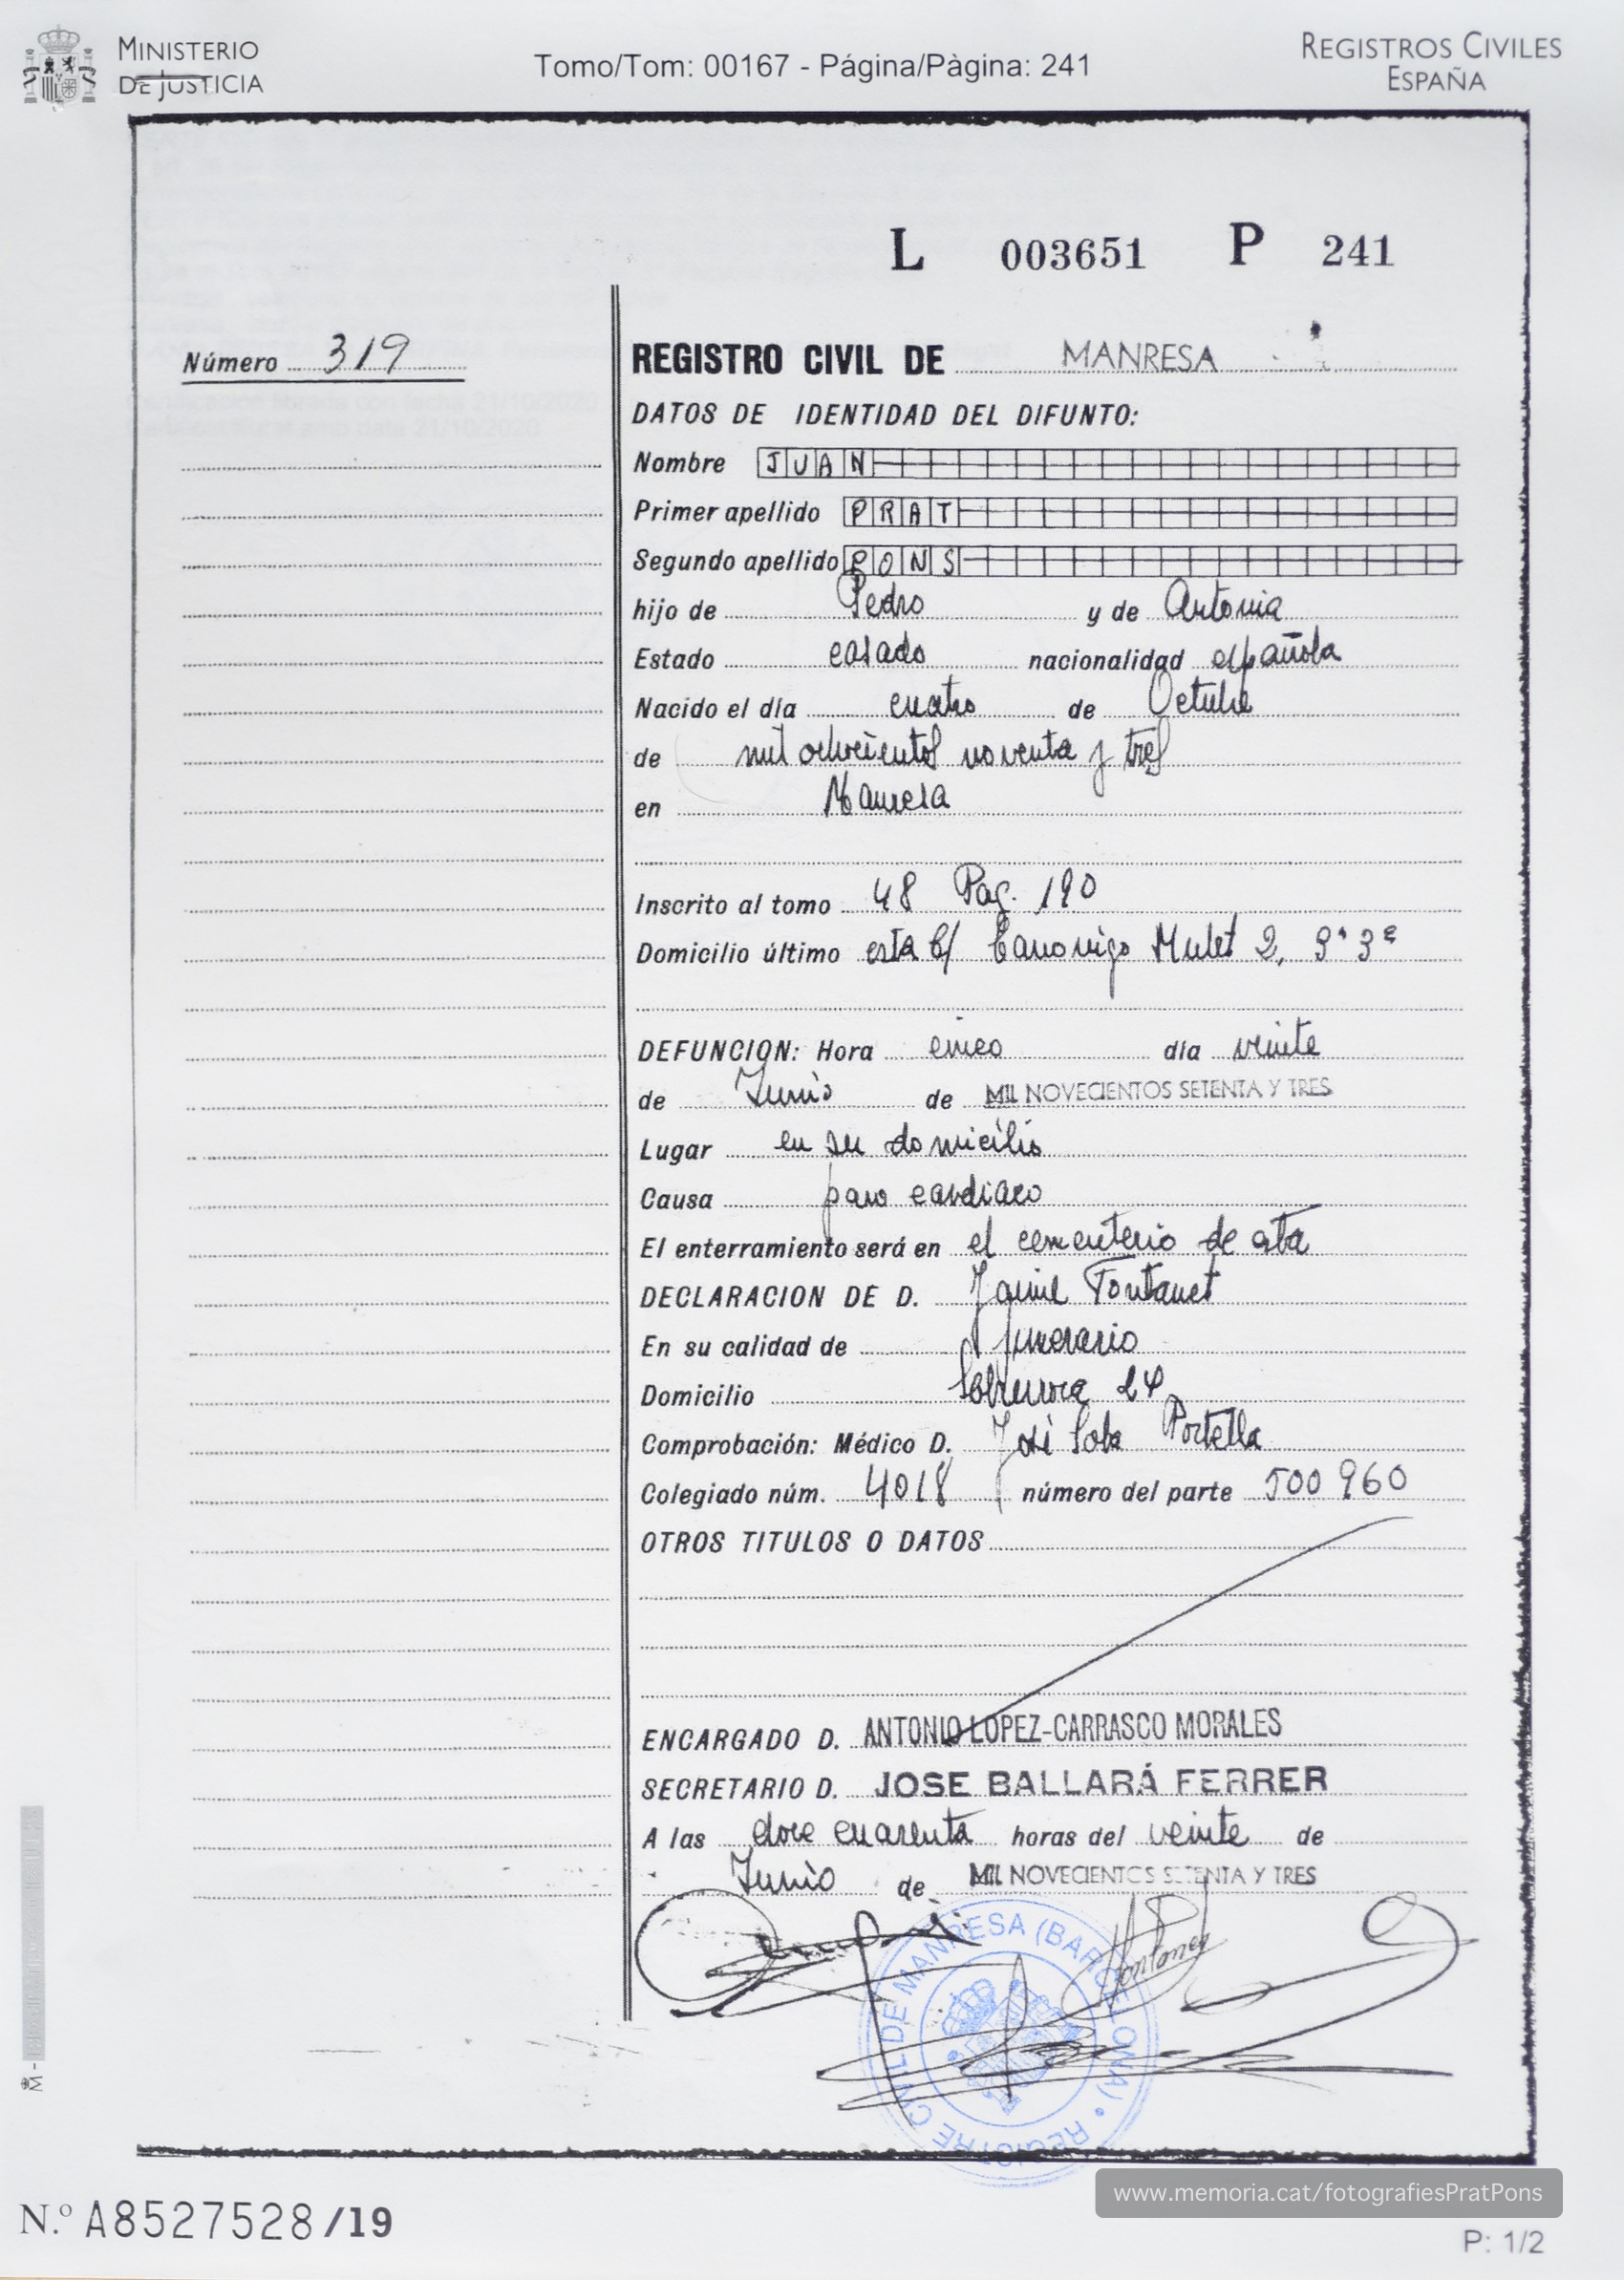 MINISTERIO
DE JUSTICIA
Tomo/Tom: 00167 - Página/Pàgina: 241
REGISTROS CIVILES
ESPAÑA
L 003651 P 241
Número 319
REGISTRO CIVIL DE MANRESA
DATOS DE IDENTIDAD DEL DIFUNTO:
Nombre JUAN
Primer apellido PRAT
Segundo apellido PONS
hijo de Pedro y de Antonia
Estado casado nacionalidad española
Nacido el día cuatro de Octubre
de mil ochocientos noventa y tres
en Manresa
Inscrito al tomo 48 Pag. 190
Domicilio último esta C/ Canonigo Mulet 2, 3ª
DEFUNCION: Hora cinco día veinte
de Junio de MIL NOVECIENTOS SETENTA Y TRES
Lugar en su domicilio
Causa paro cardiaco
El enterramiento será en el cementerio de esta
DECLARACION DE D. Jaime Fontanet
En su calidad de funerario
Domicilio Sobrerroca 24
Comprobación: Médico D. José Sola Portella
Colegiado núm. 4018 número del parte 500960
OTROS TITULOS O DATOS
ENCARGADO D. ANTONIO LOPEZ-CARRASCO MORALES
SECRETARIO D. JOSE BALLARÁ FERRER
A las doce cuarenta horas del veinte de
Junio de MIL NOVECIENTOS SETENTA Y TRES
REGISTRE CIVIL DE MANRESA (BARCELONA)
N.º A8527528/19
www.memoria.cat/fotografiesPratPons
P: 1/2